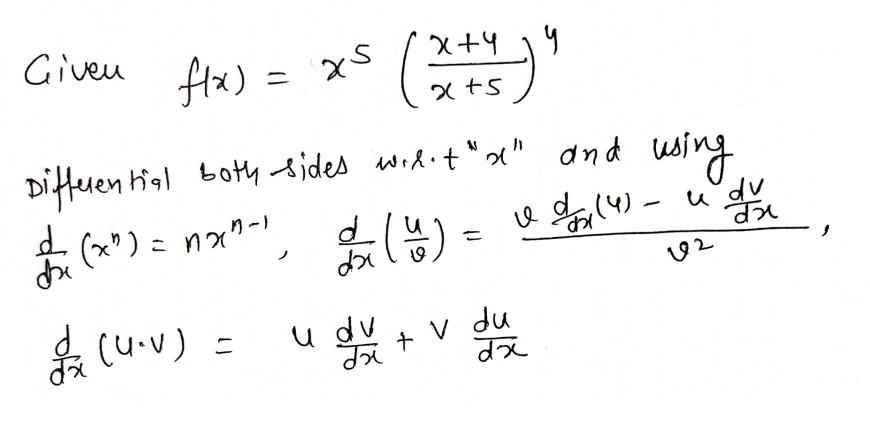 Given f(x) = x^5 ((x+4)/(x+5))^4
Differential both sides w.r.t "x" and using
d/dx (x^n) = nx^(n-1), d/dx (u/v) = (v d/dx (u) - u dv/dx)/v^2,
d/dx (u·v) = u dv/dx + v du/dx